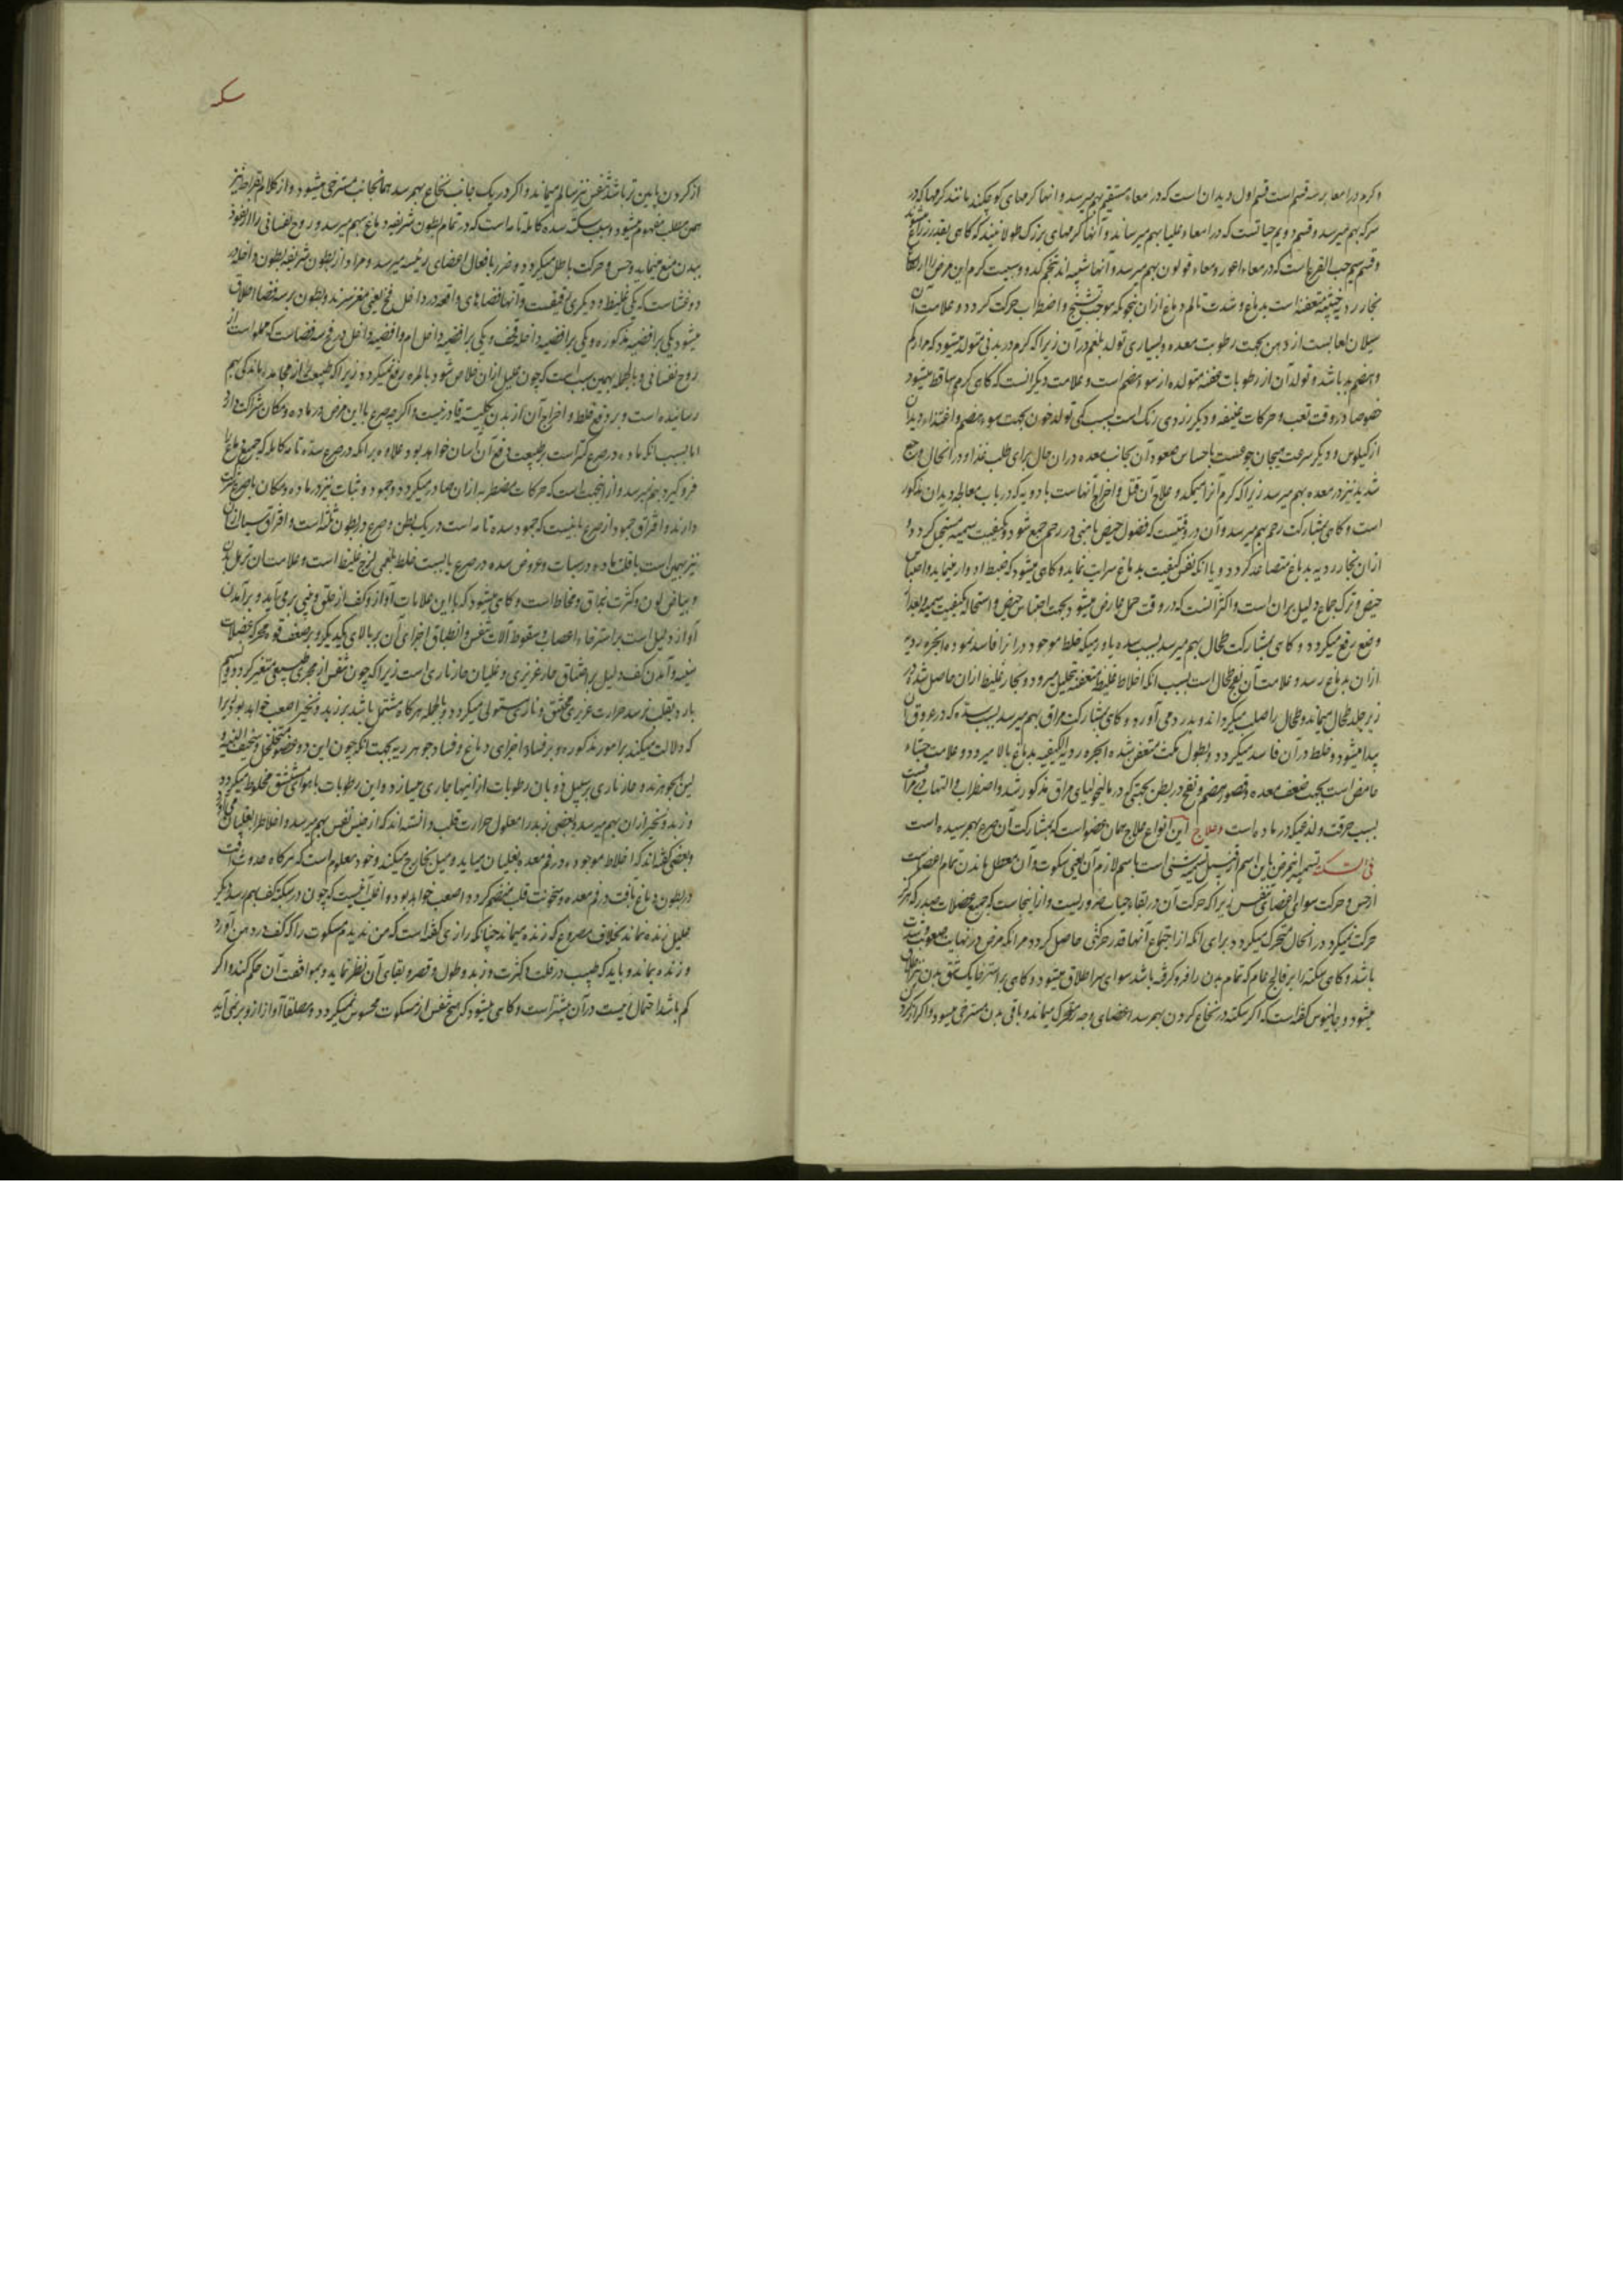 و کرم در امعا بر سه قسم است قسم اول دیدان است که در امعاء مستقیم بهم میرسد و انها کرمهای کوچکند مانند کرمها که در
سرکه بهم میرسد و قسم دویم حیاتست که در امعاء علیا بهم میرساند و آنها کرمهای بزرک طولانیند که کاهی بقدر
و قسم سیم حب القرع است که در معاء اعور و معاء قولون بهم میرسد و آنها شبیه اند بتخم کدو و سببیت کرم این مرض را
بخار ردیه متعفنه است بدماغ و شدت تالم دماغ ازان بنحویکه موجب تشنج و اضطراب حرکت کردد و علامت آن
سیلان لعابست از دهن بجهت رطوبت معده و بسیاری تولد بلغم در آن زیرا که کرم در بدنی متولد میشود که
و هضم بد باشد و تولد آن از رطوبات عفنه متولده از سوء هضم است و علامت دیکر انست که کاهی کرم ساقط میشود
خصوصا در وقت تعب و حرکات عنیفه و دیکر زردی رنک است بسبب کمی تولد خون بجهت سوء هضم و اغتذاء دیدان
از کیلوس و دیکر سرعت هیجان جوعست باحساس صعود آن بجانب معده دران حال برای طلب غذا و در انحال وجع
شدید نیز در معده بهم میرسد زیرا که کرم آنرا میکند و علاج آن قتل و اخراج آنهاست بادویه که در باب معالجه دیدان مذکور
است و کاهی بمشارکت رحم بهم میرسد و آن در وقتیست که فضول حیض یا منی در رحم جمع شود و بکیفیت سمیه مستحیل کردد و
ازان بخار ردیه بدماغ متصاعد کردد و یا انکه نفس کیفیت بدماغ سرایت نماید و کاهی میشود که ضبط ادوار مینماید و احتباس
حیض و ترک جماع دلیل بران است و اکثر آنست که در وقت حمل عارض میشود بجهت احتباس حیض و استحاله کیفیت سمیه و بعد از
وضع رفع میکردد و کاهی بمشارکت طحال بهم میرسد بسبب سده یا ورمیکه خلط موجود در انرا فاسد نموده ابخره ردیه
ازان بدماغ رسد و علامت آن نفخ طحال است بسبب انکه اخلاط غلیظه متعفنه بتحلیل میرود و بخار غلیظ ازان حاصل شده در
زیر جلد طحال میماند و طحال را صلب میکرداند و بدرد می آورد و کاهی بمشارکت مراق بهم میرسد بسبب سده که در عروق آن
پیدا میشود و خلط در آن فاسد میکردد و بطول مکث متعفن شده ابخره ردیه الکیفیه بدماغ بالا میرود و علامت جشاء
حامض است بجهت ضعف معده و قصور هضم و نفخ در بطن بجهتی که در مالیخولیای مراق مذکور شد و اضطراب و التهاب در مراقست
بسبب حرقت و لذعیکه در ماده است و علاج این انواع علاج همان عضو است که بمشارکت آن صرع بهم رسیده است
فی السکته تسمیه اینمرض باین اسم از قبیل تسمیه شیئ است باسم لازم آن یعنی سکوت و آن معطل ماندن تمام اعضاست
از حس و حرکت سوای اعضای تنفس زیرا که حرکت آن در بقاء حیات ضروریست و ازاینجاست که جمیع عضلات صدر که هرکز
حرکت نمیکرد در انحال متحرک میکردد برای انکه از اجتماع آنها قدر حرکتی حاصل کردد مرا نکه مرض در نهایت صعوبت
باشد و کاهی سکته را بر فالج عام که تمام بدن را فرو کرفته باشد سوای سر اطلاق میشود و کاهی بر استرخاء یک شق بدن نیز اطلاق
میشود و جالینوس کفته است که اکر سکته در نخاع کردن بهم رسد اعضای وجه متحرک میماند و باقی بدن مسترخی میشود و اکر از
سکه
از کردن پایین تر باشد تنفس نیز سالم میماند و اکر در یک جانب نخاع بهم رسد همانجانب مسترخی میشود و از کلام بقراط نیز
همین مطلب مفهوم میشود و سبب سکته سده کامله تامه است که در تمام بطون شریفه دماغ بهم میرسد و روح نفسانی را از نفوذ
ببدن منع مینماید و حس و حرکت باطل میکردد و ضرر بافعال اعضای رئیسه میرسد و مراد از بطون شریفه بطون داخله
دو غشاست که یکی غلیظ و دیکری رقیقست و آنها فضاهای واقعه در داخل مخ یعنی مغز سرند و بطون بر سه فضا اطلاق
میشود یکی بر افضیه مذکوره و یکی بر افضیه داخله قحف و یکی بر افضیه داخل ام و افضیه داخل دماغ سه فضاست که مملو است از
روح نفسانی و بالجمله بهمین سبب است که چون علیل ازان خلاص شود بالمره رفع نمیکردد زیرا که طبیعت را از مجاهده باندکی بهم
رسانیده است و بر دفع خلط و اخراج آن از بدن بکلیت قادر نیست و اکرچه صرع با این مرض در ماده و مکان شراکت دارد
اما بسبب انکه ماده در صرع کمتر است بر طبیعت دفع آن آسان خواهد بود علاوه بر انکه در صرع سده تامه کامله که جمیع دماغ را
فرو کیرد بهم نمیرسد و از اینجهت است که حرکات مضطربه ازان صادر میکردد و جمود و ثبات نیز در ماده و مکان با صرع شرکت
دارند و افتراق جمود از صرع باینست که جمود سده تامه است در یک بطن و صرع در بطون ثلثه است و افتراق سبات ازان
نیز بهمین است با قلت ماده در سبات و عروض سده در صرع یا بسبب خلط بلغمی لزج غلیظ است و علامت ان ترهل بدن
و بیاض لون و کثرت بزاق و مخاط است و کاهی میشود که با این علامات آواز و کف از حلق و بینی برمی آید و برآمدن
آواز دلیل است بر استرخاء اعصاب و سقوط آلات تنفس و انطباق اجزای آن بر بالای یکدیکر و بر ضعف قوه محرکه عضلات
سینه و آمدن کف دلیل بر احتناق حار غریزی و غلیان حار ناری است زیرا که چون تنفس از مجری طبیعی متغیر کردد و نسیم
بارد بقلب نرسد حرارت غریزی مختنق و ناری مستولی میکردد و بالجمله هرکاه مشتمل باشد بر زبد و نخیر اصعب خواهد بود زیرا
که دلالت میکند بر امور مذکوره و بر فساد اجزای دماغ و فساد جوهر ریه بجهت انکه چون این دو عضو متخلخل و سخیف البنیه و
لین الجوهرند و حار ناری بر سبیل ذوبان رطوبات از انها جاری میسازد و این رطوبات با هوای مستنشق مخلوط میکردد
و زبد و نخیر ازان بهم میرسد و بعضی زبد را معلول حرارت قلب دانسته اند که از حبس نفس بهم میرسد و اخلاط را بغلیان می آورد
و بعضی کفته اند که اخلاط موجوده در فم معده بغلیان می‌آید و میل بخارج میکند و خود معلوم است که هرکاه حدوث آفت
در بطون دماغ بآفت در فم معده و سخونت قلب منضم کردد اصعب خواهد بود و اغلب آنست که چون در سکته کف بهم رسد دیکر
علیل زنده نماند بخلاف مصروع که زنده میماند چنانکه رازی کفته است که من ندیدم مسکوت را که کف در دهن آورد
و زنده بماند و باید که طبیب در قلت و کثرت زبد و طول و قصر و بقای آن نظر نماید و بموافقت آن حکم کند و اکر
کم باشد احتمال زیست در آن بیشتر است و کاهی میشود که هیچ تنفس از مسکوت محسوس نمیکردد و مطلقا آواز ازو برنمی آید